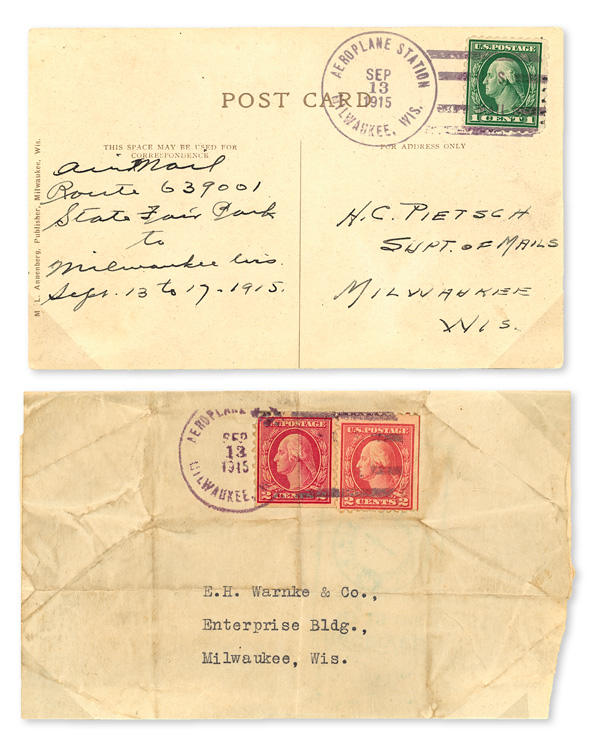 AEROPLANE STATION
SEP
13
1915
MILWAUKEE, WIS.
U.S. POSTAGE
1 CENT 1
POST CARD
THIS SPACE MAY BE USED FOR
CORRESPONDENCE
FOR ADDRESS ONLY
M. L. Annenberg, Publisher, Milwaukee, Wis.
Air Mail
Route 639001
State Fair Park
to
Milwaukee Wis.
Sept. 13 to 17-1915.
H.C. PIETSCH
SUPT. OF MAILS
MILWAUKEE
WIS.
AEROPLANE
SEP
13
1915
MILWAUKEE,
U.S. POSTAGE
2 CENTS 2
U.S. POSTAGE
2 CENTS 2
E.H. Warnke & Co.,
Enterprise Bldg.,
Milwaukee, Wis.